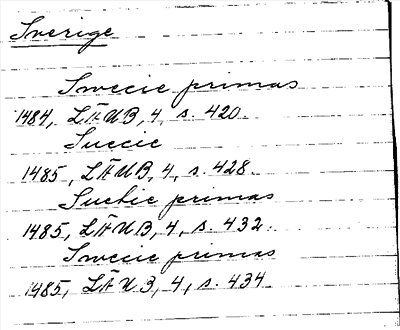 Sverige
Swecie primas
1484, LÄUB, 4, s. 420.
Succie
1485, LÄUB, 4, s. 428.
Suehie primas
1485, LÄUB, 4, s. 432.
Swecie primas
1485, LÄUB, 4, s. 434